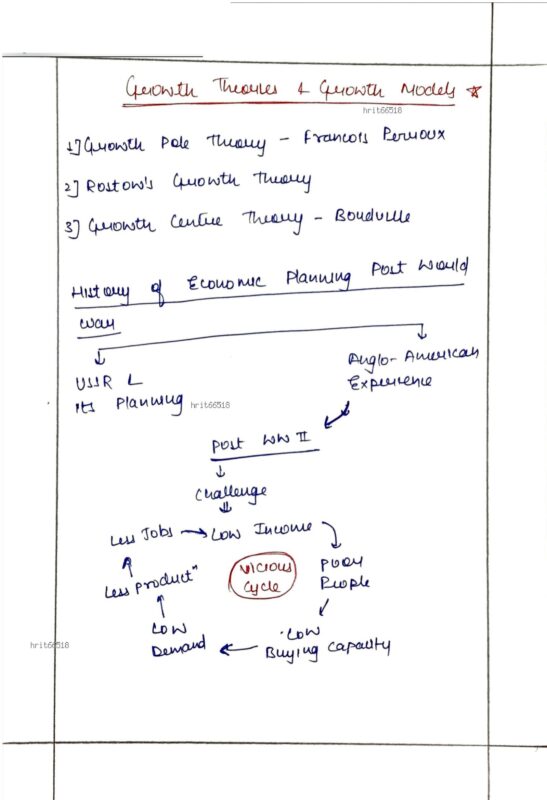 Growth Theories & Growth Models ☆
hrit66518
1] Growth Pole Theory - Francois Perroux
2] Rostow's Growth Theory
3] Growth Centre Theory - Boudville
History of Economic Planning Post World
War
USSR &
its Planning
hrit66518
Anglo-American
Experience
Post WW II
Challenge
Less Jobs → Low Income
Poor
People
Low
Buying Capacity
Low
Demand
Less Product"
Vicious
Cycle
hrit66518